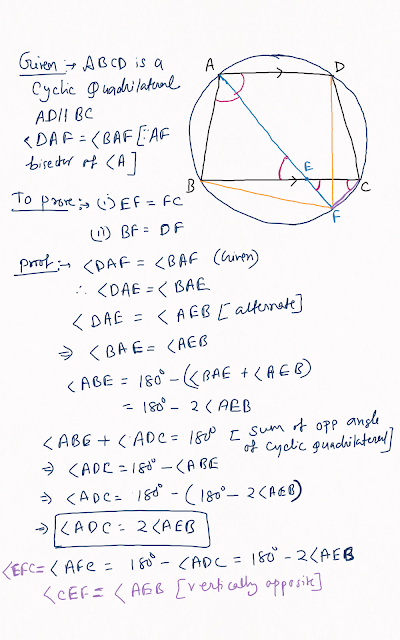 Given :→ ABCD is a
Cyclic Quadrilateral
AD || BC
<DAF = <BAF [∵ AF
bisector of <A]
A
D
B
E
C
F
To prove :→ (i) EF = FC
(ii) BF = DF
Proof :→ <DAF = <BAF (Given)
∴ <DAE = <BAE
<DAE = <AEB [alternate]
⇒ <BAE = <AEB
<ABE = 180° - (<BAE + <AEB)
= 180° - 2<AEB
<ABE + <ADC = 180° [sum of opp angle
of cyclic quadrilateral]
⇒ <ADC = 180° - <ABE
⇒ <ADC = 180° - (180° - 2<AEB)
⇒ <ADC = 2<AEB
<EFC = <AFC = 180° - <ADC = 180° - 2<AEB
<CEF = <AEB [vertically opposite]